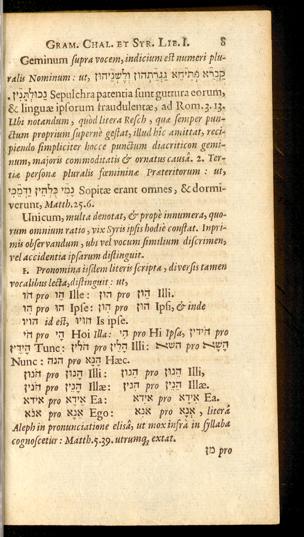 GRAM. CHAL. ET SYR. LIB. I. 8
Geminum supra vocem, indicium est numeri plu-
ralis Nominum: ut,
Sepulchra patentia sunt guttura eorum,
& linguæ ipsorum fraudulentæ, ad Rom. 3. 13.
Ubi notandum, quòd litera Resch, quæ semper pun-
ctum proprium supernè gestat, illud hîc amittat, reci-
piendo simpliciter hocce punctum diacriticon gemi-
num, majoris commoditatis & ornatus causâ. 2. Ter-
tiæ personæ pluralis fœmininæ Præteritorum: ut,
Sopitæ erant omnes, & dormi-
verunt, Matth. 25. 6.
Unicum, multa denotat, & propè innumera, quo-
rum omnium ratio, vix Syris ipsis hodiè constat. Inpri-
mis observandum, ubi vel vocum similium discrimen,
vel accidentia ipsarum distinguit.
1. Pronomina iisdem literis scripta, diversis tamen
vocalibus lecta, distinguit: ut,
הו pro הו Ille: הנון pro הנון Illi.
הו pro הו Ipse: הנון pro הנון Ipsi, & inde
הויו id est, הויו Is ipse.
הי pro הי Hoi Illa: הי pro הי Hi Ipsa, pro
Tunc: pro Illi: pro
Nunc: הנא pro הנא Hæc.
הנון pro הנון Illi: הנון pro הנון Illi,
הנין pro הנין Illæ: הנין pro הנין Illæ.
אידא pro אידא Ea: אידא pro אידא Ea.
אנא pro אנא Ego: אנא pro אנא, literâ
Aleph in pronunciatione elisâ, ut mox infrà in syllaba
cognoscetur: Matth. 5. 39. utrumq; extat.
מן pro